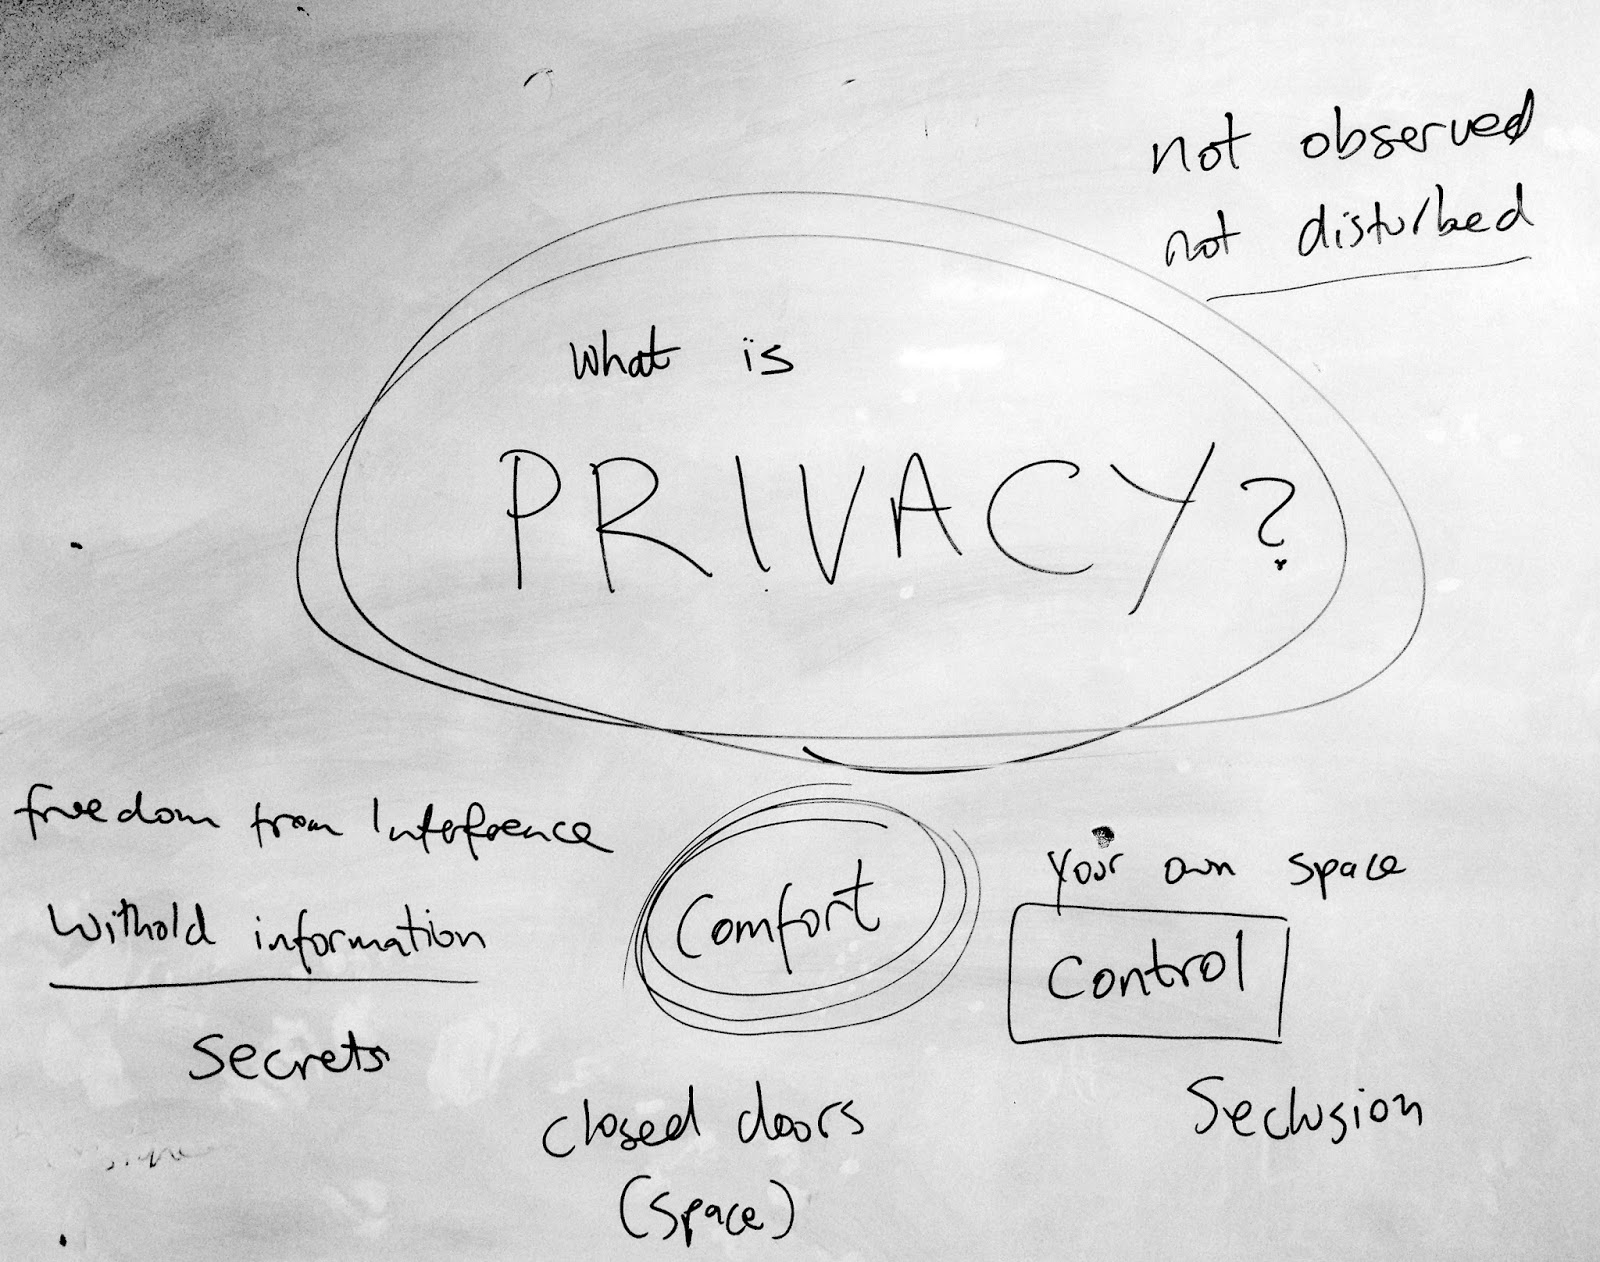 not observed
not disturbed
What is
PRIVACY?
freedom from Interference
Withold information
Secrets
Comfort
Closed doors
(Space)
Your own space
Control
Seclusion